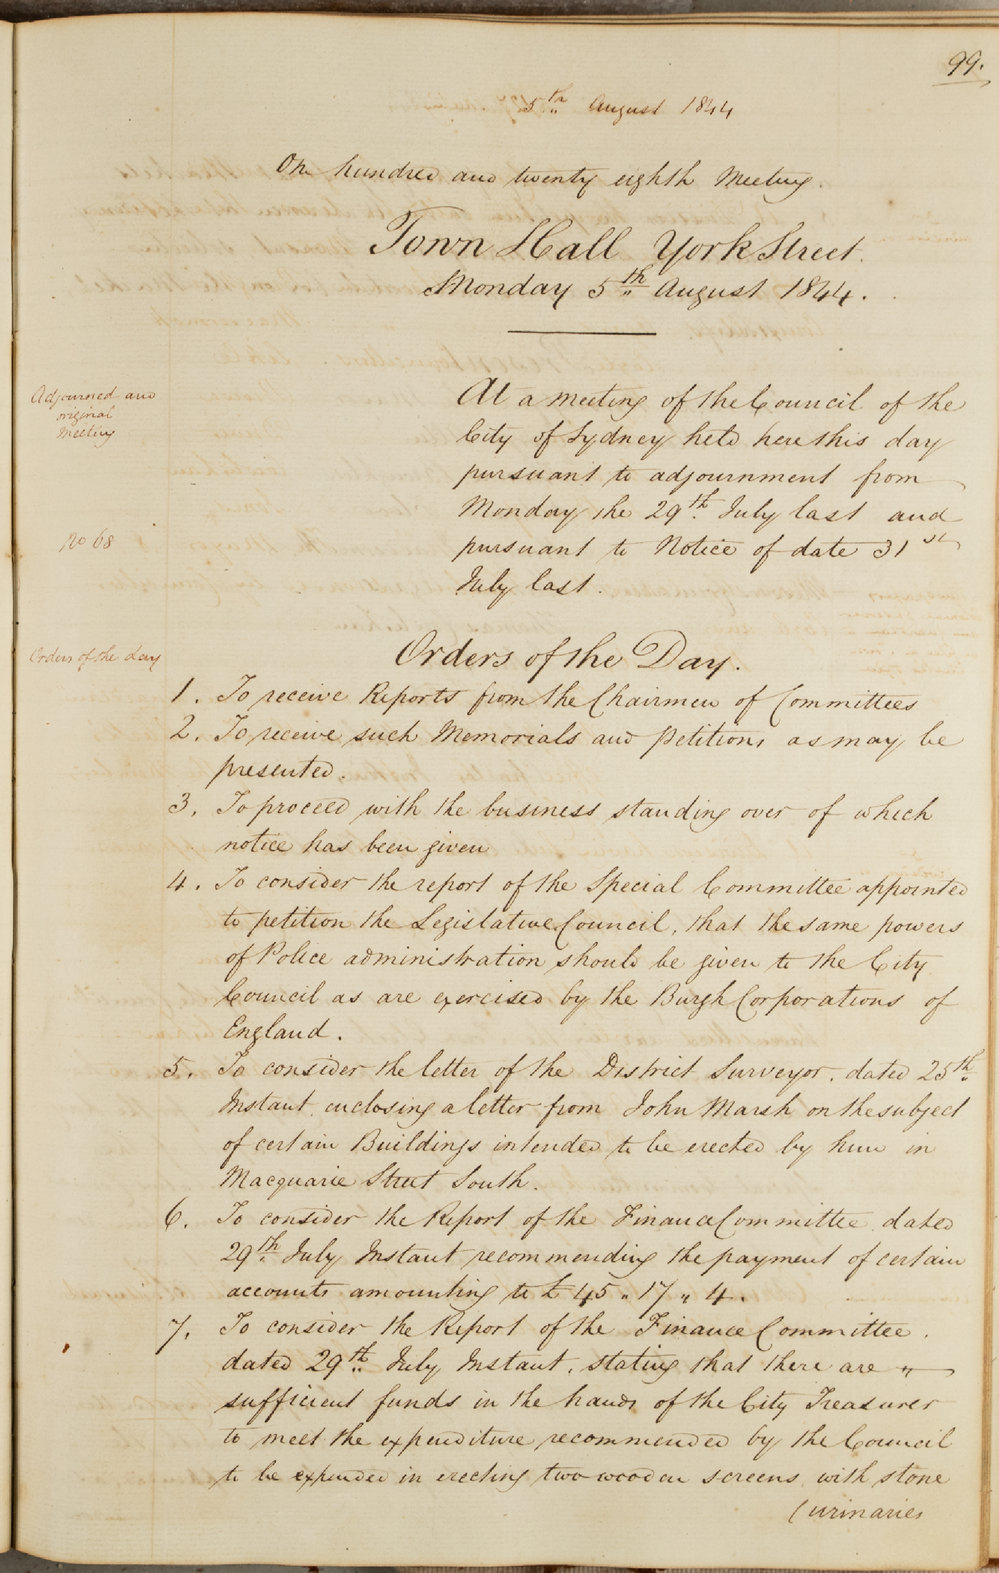 99.
5th August 1844
One hundred and twenty eighth Meeting.
Town Hall York Street.
Monday 5th August 1844.
Adjourned and
original
Meeting
At a meeting of the Council of the
City of Sydney held here this day
pursuant to adjournment from
Monday the 29th July last and
No 68
pursuant to Notice of date 31st
July last.
Orders of the day
Orders of the Day.
1. To receive Reports from the Chairmen of Committees
2. To receive such Memorials and petitions as may be
presented.
3. To proceed with the business standing over of which
notice has been given
4. To consider the report of the Special Committee appointed
to petition the Legislative Council, that the same powers
of Police administration should be given to the City
Council as are exercised by the Burgh Corporations of
England.
5. To consider the letter of the District Surveyor. dated 25th
Instant. enclosing a letter from John Marsh on the subject
of certain Buildings intended to be erected by him in
Macquarie Street South.
6. To consider the Report of the Finance Committee dated
29th July Instant recommending the payment of certain
accounts amounting to £45 " 17 " 4.
7. To consider the Report of the Finance Committee.
dated 29th July Instant. stating that there are "
sufficient funds in the hands of the City Treasurer
to meet the expenditure recommended by the Council
to be expended in erecting two wooden screens with stone
(urinaries